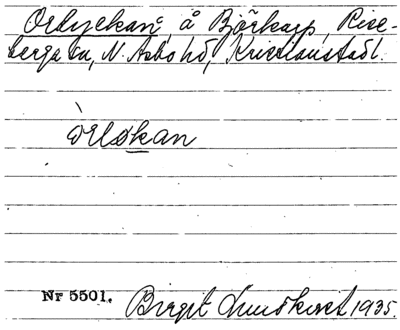 Orlyckan, å Björkarp, Rise-
berga sn, N. Åsbo hd, Kristianstads l.
òrløkan
Nr 5501. Birgit Lundkvist 1935.